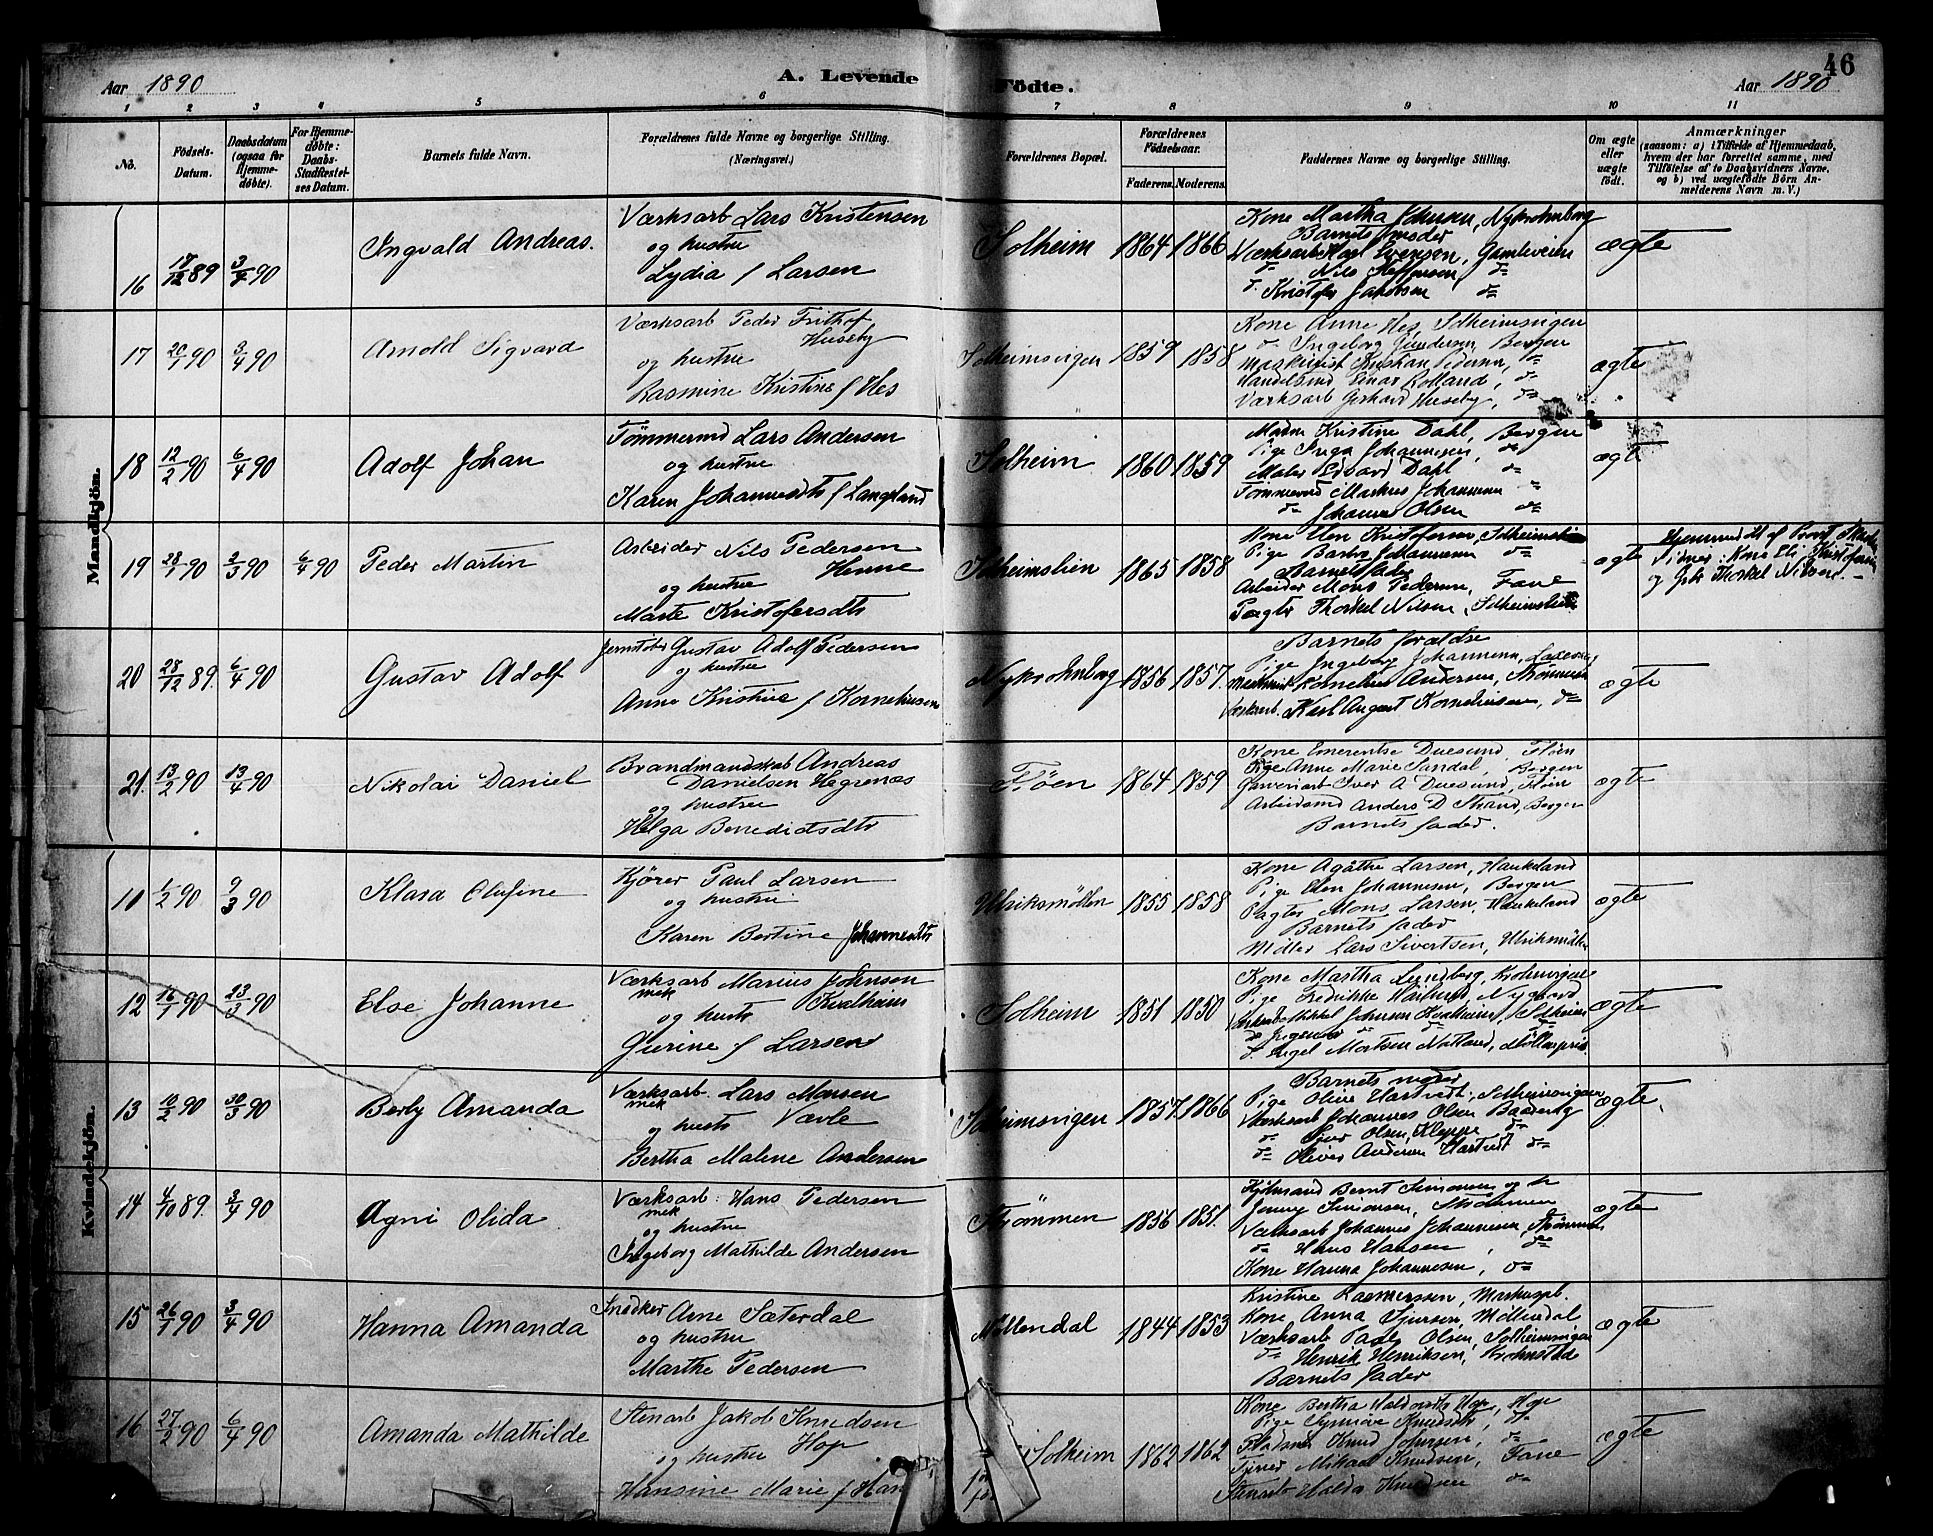 46
Aar 1890
A. Levende Födte.
Aar 1890
1 2 3 4 5 6 7 8 9 10 11
No.
Födsels-Datum.
Daabsdatum (ogsaa for Hjemme-döbte).
For Hjemme-døbte: Daabs-Stadfæstel-ses Datum.
Barnets fulde Navn.
Forældrenes fulde Navne og borgerlige Stilling.
(Næringsvei.)
Forældrenes Bopæl.
Forældrenes Födselsaar.
Faderens. Moderens.
Faddernes Navne og borgerlige Stilling.
Om ægte eller uægte födt.
Anmærkninger
(saasom: a) i Tilfælde af Hjemmedaab, hvem der har forrettet samme, med Tilföielse af to Daabsvidners Navne, og b) ved uægtefödte Börn An-melderens Navn m. V.)
Mandkjön.
16 17/12 89 3/4 90 Ingvald Andreas.
Værksarb Lars Kristensen
og hustru
Lydia f Larsen
Solheim 1864 1866
Kone Martha Johnsen, Nykrohnborg
Barnets moder
Værksarb Karl Evensen, Gamleveien
do Nils Steffensen do
do Kristofer Jakobsen do
ægte
17 20/1 90 3/4 90 Arnold Sigvard
Værksarb Peder Frithof
Huseby
og hustru
Rasmine Kristine f Hes
Solheimsvigen 1859 1858
Kone Anne Hes, Solheimsvigen
do Ingeborg Gundersen, Bergen
Maskinist Kristian Pedersen, do
Handelsmd Einar Rolland, do
Værksarb Gerhard Huseby, do
ægte
18 12/2 90 6/4 90 Adolf Johan
Tömmermd Lars Andersen
og hustru
Karen Johannesdtr f Langeland
Solheim 1860 1859
Madm Kristine Dahl, Bergen
Pige Inga Johannesen, do
Maler Edvard Dahl do
Tømmermd Markus Johannesen do
do Johannes Olsen do
ægte
19 28/1 90 2/3 90 6/4 90 Peder Martin
Arbeider Nils Pedersen
Henne
og hustru
Marte Kristofersdtr
Solheimslien 1865 1858
Kone Eli Kristofersen, Solheimslien
Pige Barbro Johannesen do
Barnets fader
Arbeider Mons Pedersen, Fane
Pagter Thorkel Nilsen, Solheimslien
ægte
20 28/12 89. 6/4 90 Gustav Adolf
Jernstøber Gustav Adolf Pedersen
og hustru
Anne Kristine f Kornelinsen
Nykrohnborg 1856 1857.
Barnets forældre
Pige Ingeborg Johannesen, Laxevaag
Maskinist Kornelius Andersen, Strømmen
Værksarb. Karl August Korneliusen, do
ægte
21. 13/2 90 13/4 90 Nikolai Daniel
Brandmandskab Andreas
Danielsen Hegrenæs
og hustru
Helga Benedictsdtr
Fløen 1864 1859
Kone Emerentse Duesund, Fløen
Pige Anne Marie Sandal, Bergen
Garveriarb Iver A Duesund, Fløen
Arbeidsmd Anders D Strand, Bergen
Barnets fader.
ægte
Kvindekjön.
11 6/2 90 9/3 90 Klara Olufine
Kjører Paul Larsen
og hustru
Karen Bertine Johannesdtr
Ulriksmöllen 1855 1858
Kone Agåthe Larsen, Haukeland
Pige Elen Johannesen, Bergen
Pagter Mons Larsen, Haukeland
Barnets fader
Möller Lars Sivertsen, Ulriksmöllen
ægte
12 16/1 90 23/3 90 Else Johanne
Værksarb Marius Johnsen
mek Kvalheim
og hustr
Gurine f Larsen
Solheim 1851 1850
Kone Martha Lundberg, Krohnvigen
Pige Fredrikke Nygaard
Værksarb Mikkel Johnsen Kvalheim, Solheim
do Ingel Mortsen Natland, Möllenpris
ægte
13 10/2 90 30/3 90 Berly Amanda
Værksarb. Lars Monsen
mek
og hustr Varle
Bertha Malene Andersen
Solheimsvigen 1857. 1866
Barnets moder
Pige Oline Hartvedt, Solheimsvigen
Værksarb Johannes Olsen
do Olsen, Kleppe do
do Oliver Andersen Hartvedt do
ægte.
14 4/10 89. 3/4 90 Agni Olida
Værksarb: Hans Pedersen
mek
og hustru
Ingeborg Mathilde Andersen
Strömmen 1856 1851.
Kjøbmand Bernt Simonsen og
Jenny Simonsen, Strömmen
Værksarb Johannes Johannesen, Strömmen
do Hans Hansen, do
Kone Hanna Johannesen, do
ægte
15 26/1 90 3/4 90 Hanna Amanda
Snedker Arne Sæterdal
og hustru
Marthe Pedersen
Möllendal 1844 1853
Kristine Rasmussen, Markuspl.
Kone Anna Sjursen, Möllendal
Værksarb Olsen, Solheimsvigen
do Henrik Henriksen, Krohnstad
Barnets fader
ægte
16 27/2 90 6/4 90 Amanda Mathilde
Stenarb Jakob Knudsen
og hustru Hop
Hansine Marie f Han
Solheim 1862 1862
Kone Bertha Haldorsdtr Hop, Hop
Pige Synnøve Knudsdtr, do
Knud Johnsen, do
Mikael Knudsen, Fane
Stenarb Haldor Knudsen do
ægte